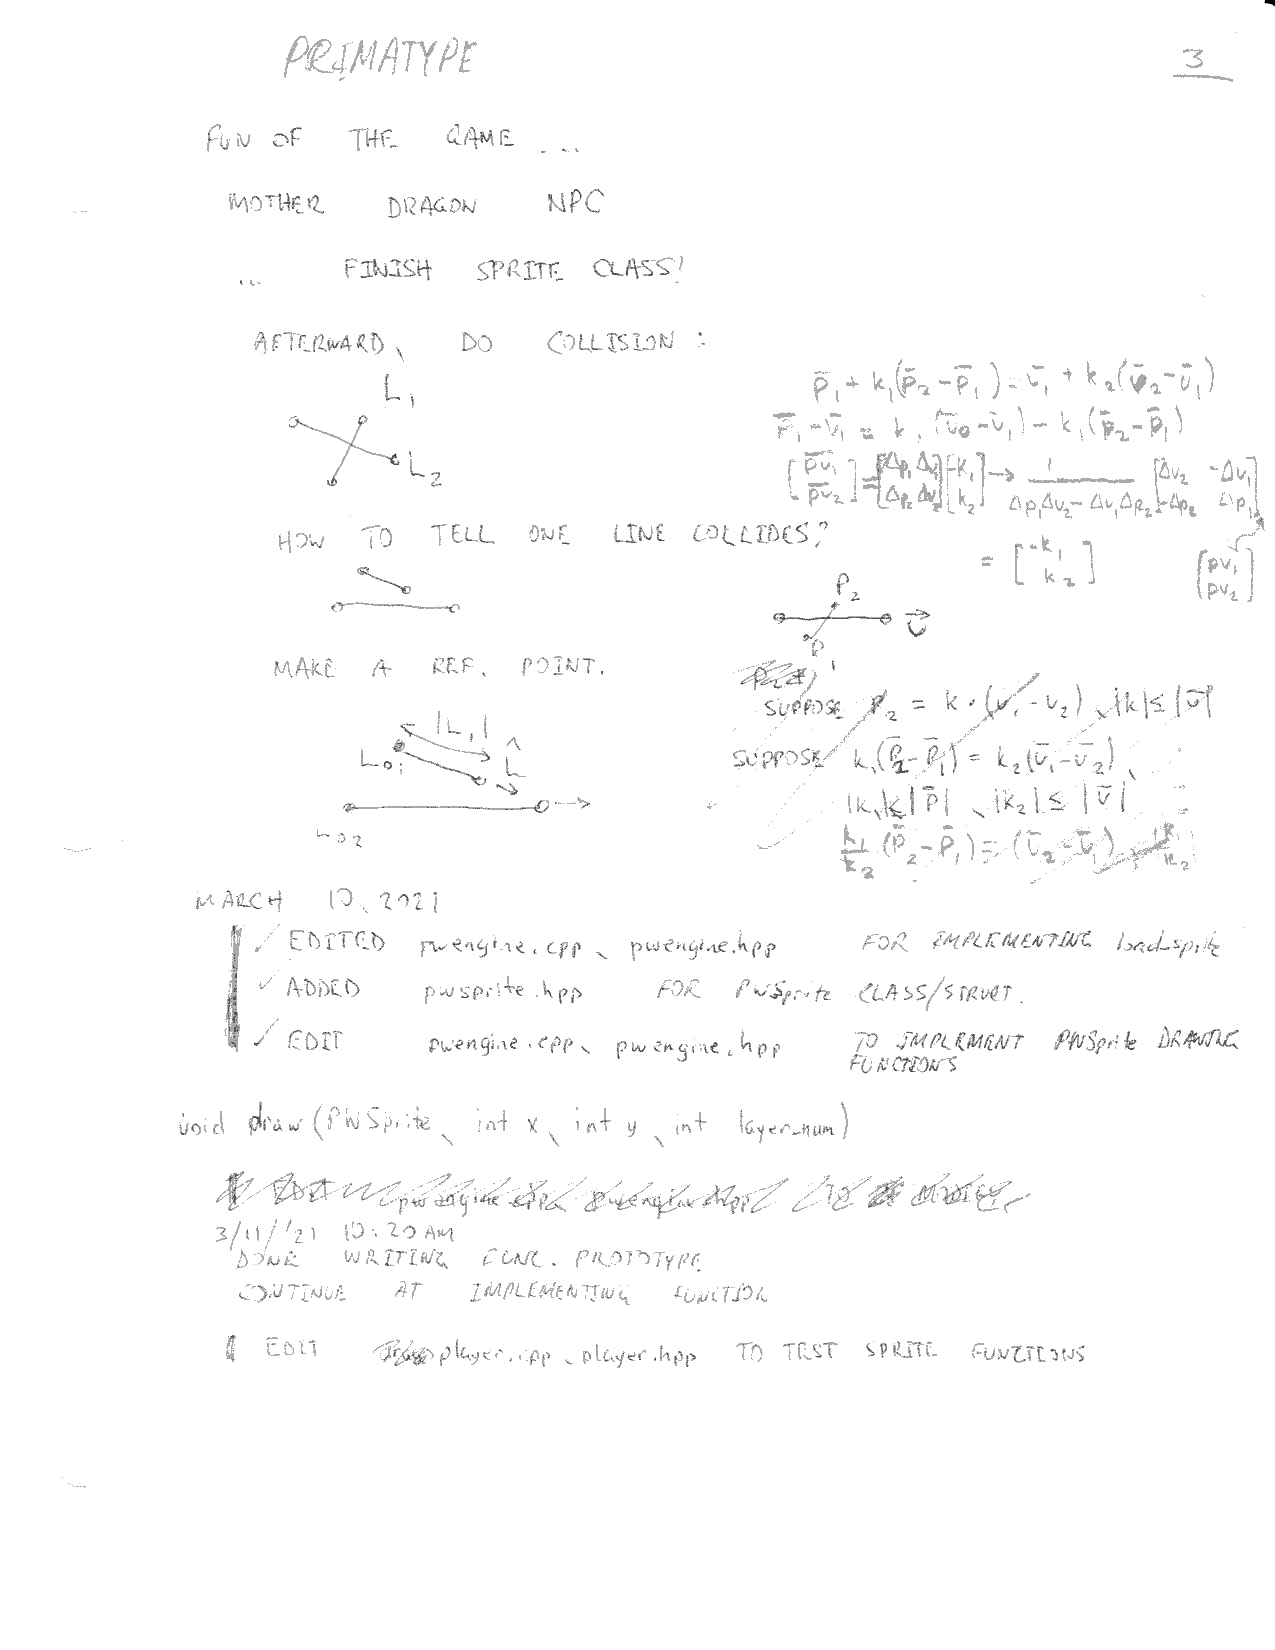 PRIMATYPE
3
FUN OF THE GAME ...
MOTHER DRAGON NPC
... FINISH SPRITE CLASS!
AFTERWARD, DO COLLISION:
L₁
L₂
p̄₁ + k₁(p̄₂ - p̄₁) = v̄₁ + k₂(v̄₂ - v̄₁)
[pv₁ pv₂] = [Δp₁ Δv₁ Δp₂ Δv₂] [-k₁ k₂] → 1 / Δp₁Δv₂ - Δv₁Δp₂ [Δv₂ -Δv₁ -Δp₂ Δp₁]
= [-k₁ k₂] [pv₁ pv₂]
HOW TO TELL ONE LINE COLLIDES?
P₂
v⃗
P₁
MAKE A REF. POINT.
|L₁|
L₀₁
L̂
L₀₂
SUPPOSE P₂ = k·(v₁ - v₂), |k| ≤ |v̄|
SUPPOSE k₁(p̄₂ - p̄₁) = k₂(v̄₁ - v̄₂),
|k₁| ≤ |p̄|, |k₂| ≤ |v̄|
k₁/k₂ (p̄₂ - p̄₁) = (v̄₂ - v̄₁)
MARCH 10, 2021
✓ EDITED pwengine.cpp, pwengine.hpp FOR IMPLEMENTING load_sprite
✓ ADDED pwsprite.hpp FOR PWSprite CLASS/STRUCT.
✓ EDIT pwengine.cpp, pwengine.hpp TO IMPLEMENT PWSprite DRAWING
FUNCTIONS
void draw(PWSprite, int x, int y, int layer_num)
EDIT pwengine.cpp, pwengine.hpp TO
3/11/'21 10:20 AM
DONE WRITING FUNC. PROTOTYPE
CONTINUE AT IMPLEMENTING FUNCTION
EDIT player.cpp, player.hpp TO TEST SPRITE FUNCTIONS